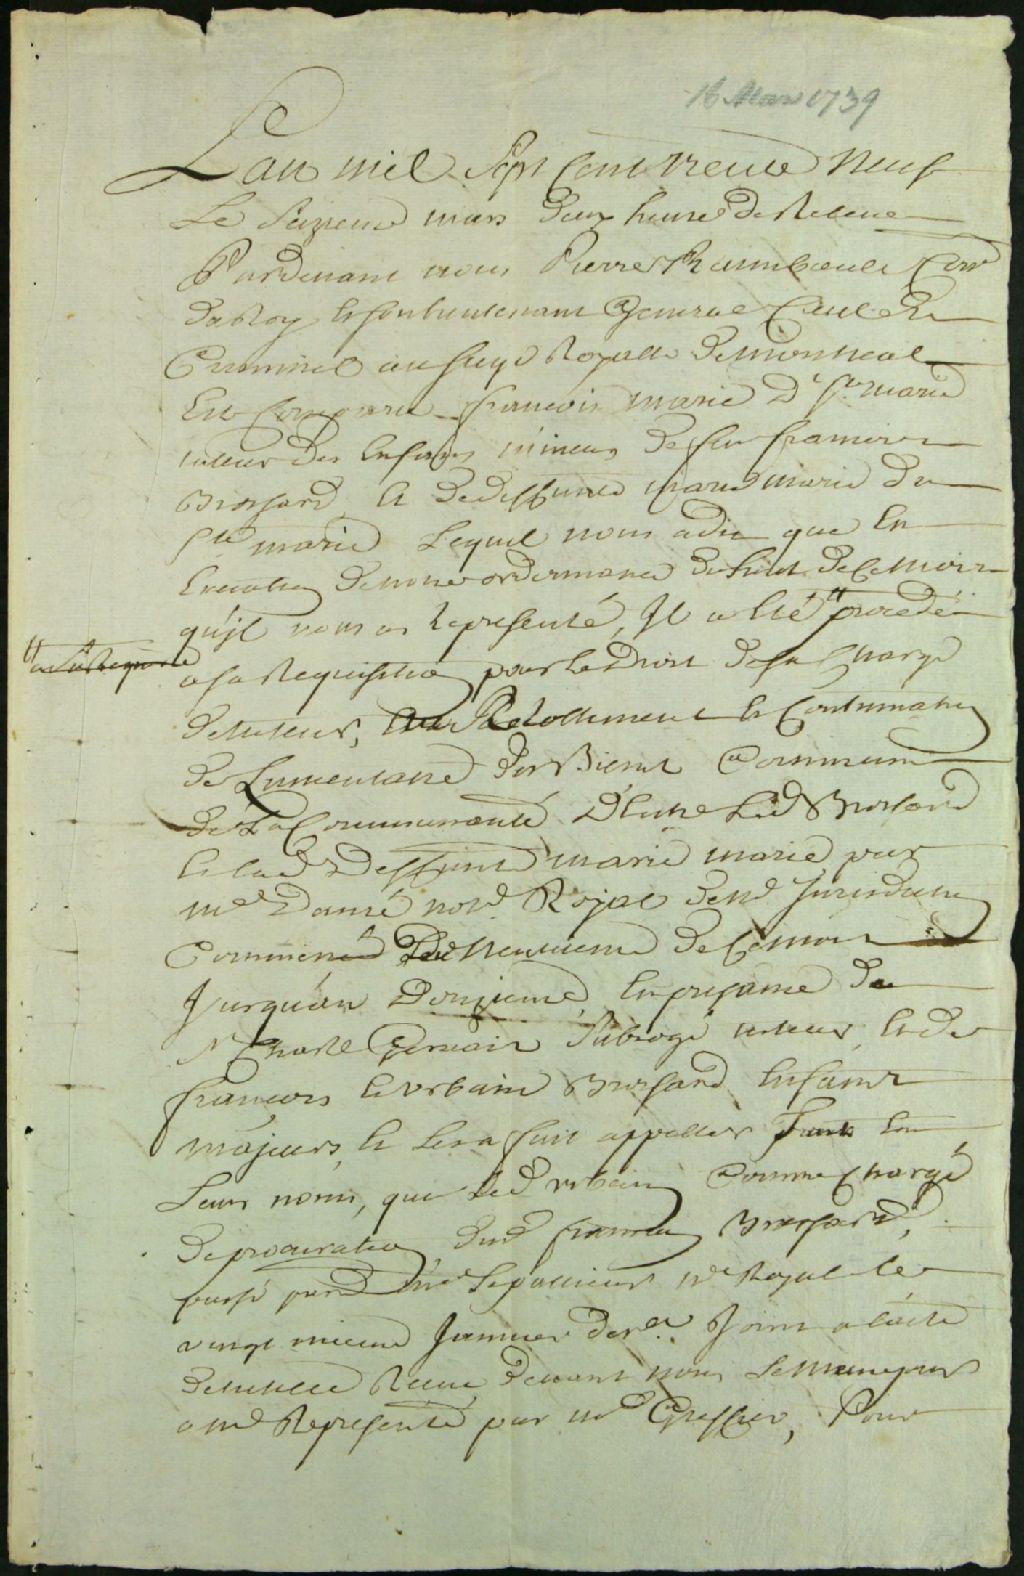 16 Mars 1739
L'an mil Sept Cent trente Neuf
Le Seizieme mars deux heures de Relevée
Pardevant nous Pierre Raimbault Con.er
du Roy Lieutenant General Civil et
Criminel au siege Royalle de Montreal
Est Comparu francois marie D.t S.te marie
tuteur des Enfans mineurs de feu francois
Brossard, et de deffunte marie marie du
S.te marie Lequel nous a dit que En
Execution de notre ordonnance du huit de Ce mois
qu'jl nous a Representé, Jl a eté procedé
a la Requeste
a sa Requisition pour le droit de sa Charge
de tuteur, au Recollement et Continuation
de Linventaire des Biens Commun
de La Communauté D'Entre Led. Brossard
et lad. deffunte marie marie par
m.e Danré not.e Royal de n.d Jurisdiction
Commencé Le Neuvieme de Ce mois
Jusqu'au Douzieme, En presence de
S.r Charle Gervais subrogé tuteur, et de
francois et urbain Brossard Enfans
majeurs, et Les a fait appeller tant En
Leurs noms, que led. urbain Comme Chargé
de procuration dud. francois Brossard,
passé pard. m.e Lepallieur n.re Royal le
vingt nieme Janvier der.er Joint a l'acte
de tutelle Recue devant nous
a nd. Representé par n.d Greffier, Pour